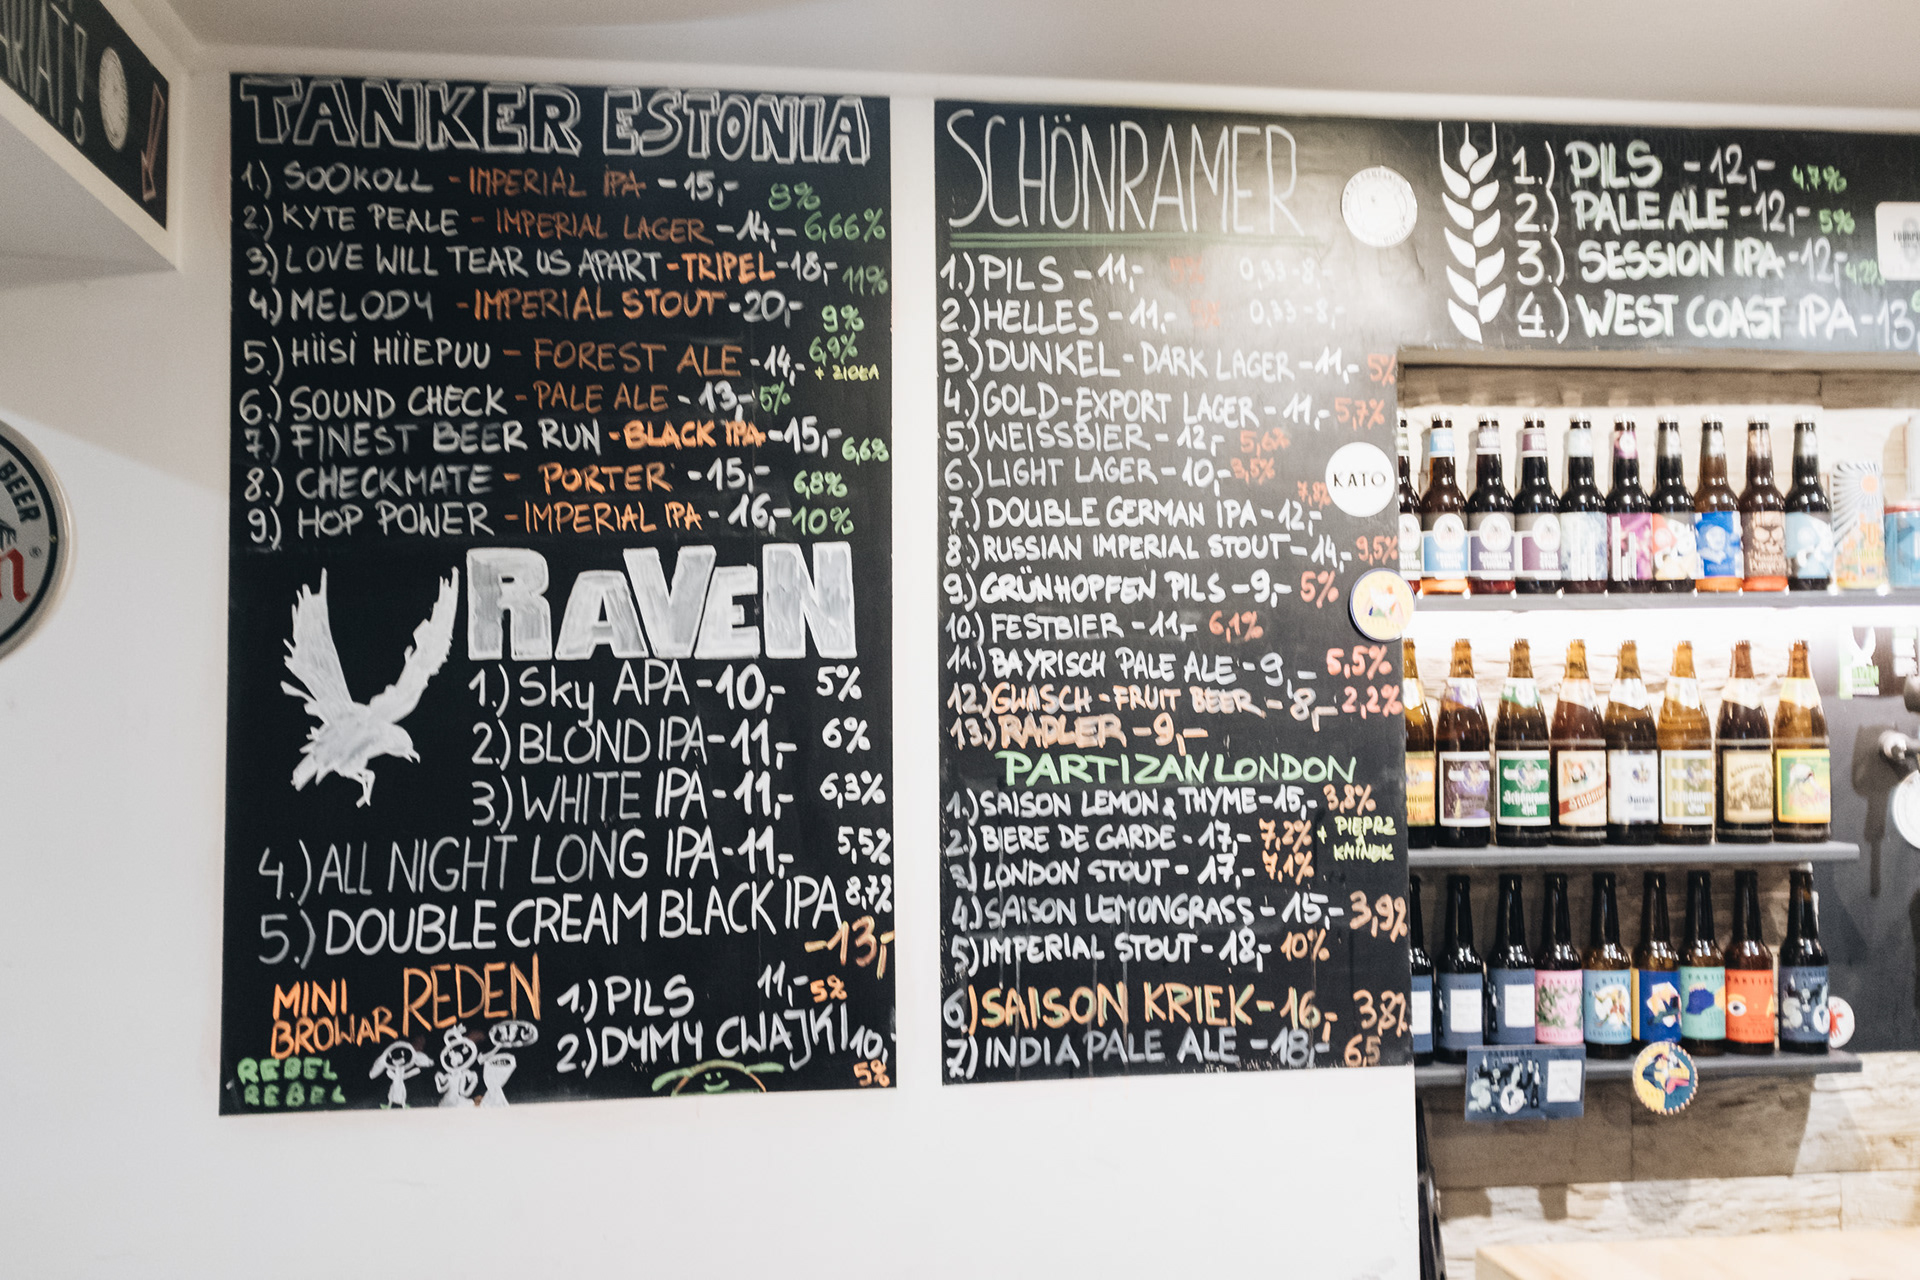 TANKER ESTONIA
1.) SOOKOLL - IMPERIAL IPA - 15,- 8%
2.) KYTE PEALE - IMPERIAL LAGER - 14,- 6,66%
3.) LOVE WILL TEAR US APART - TRIPEL - 18,- 11%
4.) MELODY - IMPERIAL STOUT - 20,- 9%
5.) HIISI HIIEPUU - FOREST ALE - 14,- 6,9%
+ ZIOŁA
6.) SOUND CHECK - PALE ALE - 13,- 5%
7.) FINEST BEER RUN - BLACK IPA - 15,- 6,6%
8.) CHECKMATE - PORTER - 15,- 6,8%
9.) HOP POWER - IMPERIAL IPA - 16,- 10%
RAVEN
1.) Sky APA - 10,- 5%
2.) BLOND IPA - 11,- 6%
3.) WHITE IPA - 11,- 6,3%
4.) ALL NIGHT LONG IPA - 11,- 5,5%
5.) DOUBLE CREAM BLACK IPA 8,7%
- 13,-
MINI
BROWAR REDEN
1.) PILS 11,- 5%
2.) DYMY CWAJKI 10,-
5%
REBEL
REBEL
SCHÖNRAMER
1.) PILS - 11,- 5% 0,33 - 8,-
2.) HELLES - 11.- 5% 0,33 - 8,-
3.) DUNKEL - DARK LAGER - 11,- 5%
4.) GOLD - EXPORT LAGER - 11,- 5,7%
5.) WEISSBIER - 12,- 5,6%
6.) LIGHT LAGER - 10,- 3,5%
7.) DOUBLE GERMAN IPA - 12,-
8.) RUSSIAN IMPERIAL STOUT - 14,- 9,5%
9.) GRÜNHOPFEN PILS - 9,- 5%
10.) FESTBIER - 11,- 6,1%
11.) BAYRISCH PALE ALE - 9 - 5,5%
12.) GWASCH - FRUIT BEER - 8,- 2,2%
13.) RADLER - 9,-
PARTIZAN LONDON
1.) SAISON LEMON & THYME - 15,- 3,8%
2.) BIERE DE GARDE - 17,- 7,2% + PIEPRZ
KMINEK
3.) LONDON STOUT - 17,- 7,1%
4.) SAISON LEMONGRASS - 15,- 3,9%
5) IMPERIAL STOUT - 18,- 10%
6.) SAISON KRIEK - 16,- 3,8%
7.) INDIA PALE ALE - 18,- 6,5
1.) PILS - 12,- 4,7%
2.) PALE ALE - 12,- 5%
3.) SESSION IPA - 12,-
4.) WEST COAST IPA - 13,
KATO
BEER